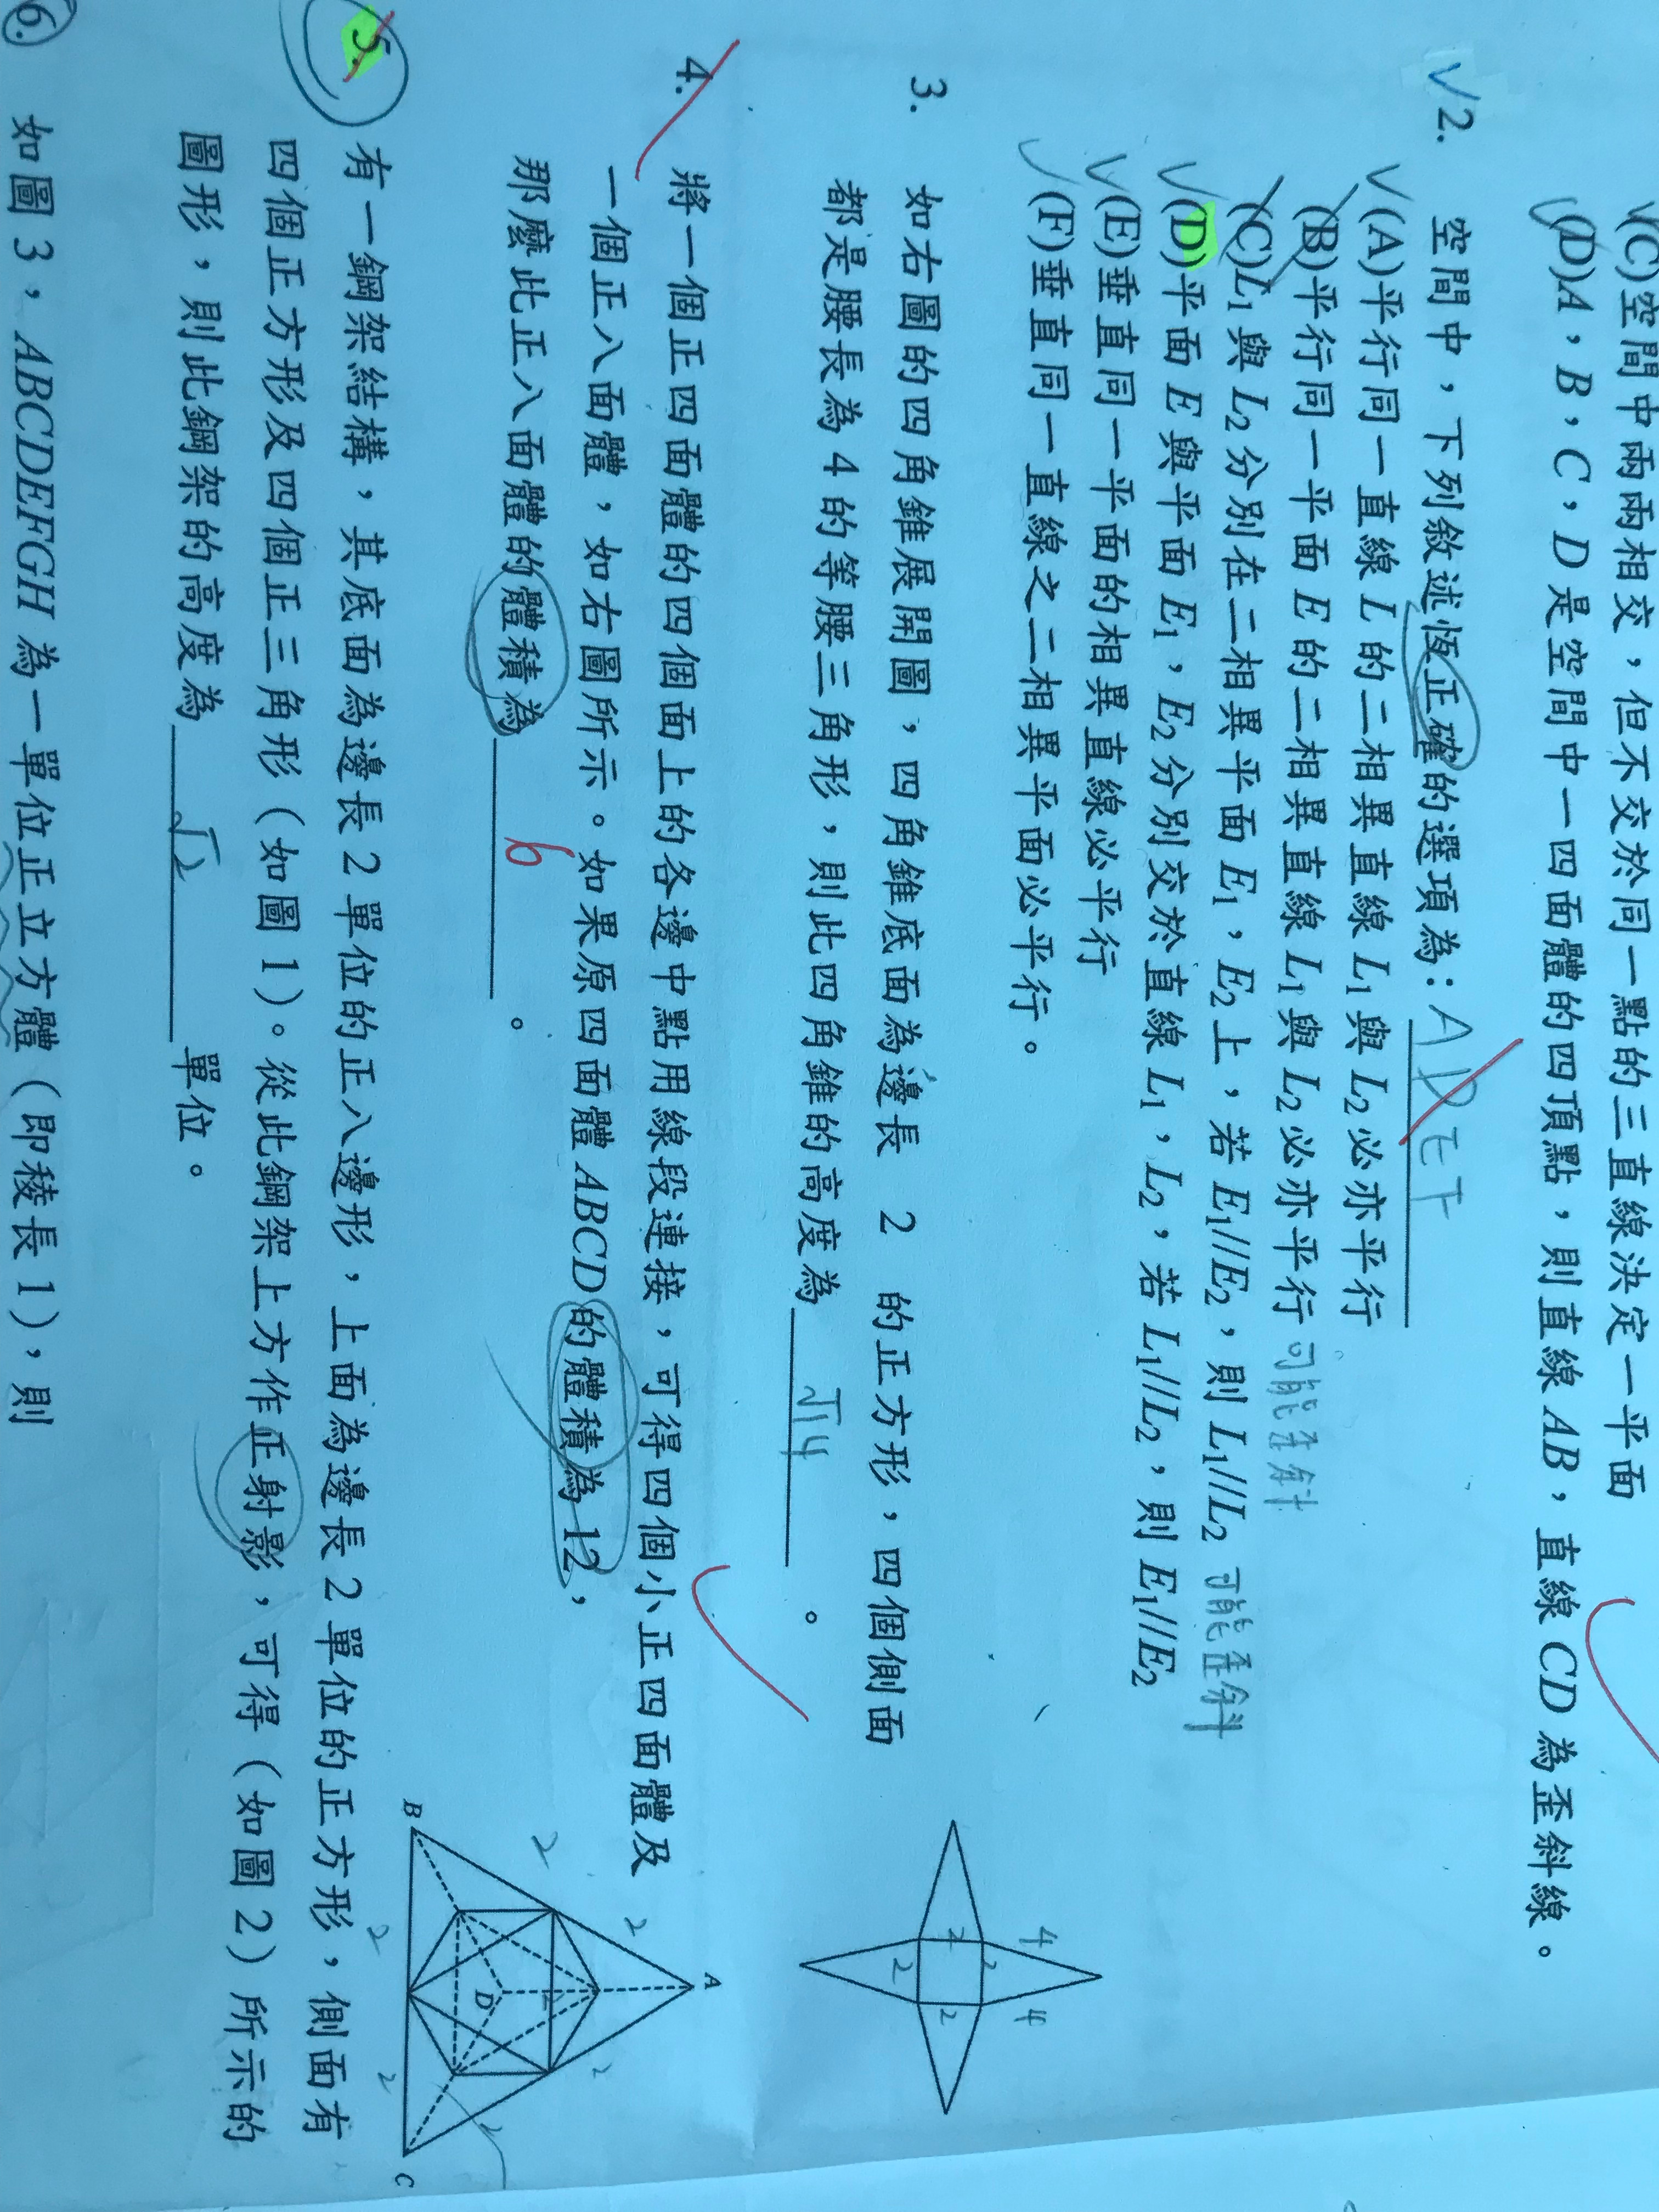 (C)空間中兩兩相交，但不交於同一點的三直線決定一平面
(D)A，B，C，D 是空間中一四面體的四頂點，則直線 AB，直線 CD 為歪斜線。
2. 空間中，下列敘述恆正確的選項為：ADEF
(A)平行同一直線 L 的二相異直線 L₁ 與 L₂ 必亦平行
(B)平行同一平面 E 的二相異直線 L₁ 與 L₂ 必亦平行 可能歪斜
(C)L₁ 與 L₂ 分別在二相異平面 E₁，E₂ 上，若 E₁//E₂，則 L₁//L₂ 可能歪斜
(D)平面 E 與平面 E₁，E₂ 分別交於直線 L₁，L₂，若 L₁//L₂，則 E₁//E₂
(E)垂直同一平面的相異直線必平行
(F)垂直同一直線之二相異平面必平行。
3. 如右圖的四角錐展開圖，四角錐底面為邊長 2 的正方形，四個側面
都是腰長為 4 的等腰三角形，則此四角錐的高度為 √14 。
4 4
2 2 2 2
4. 將一個正四面體的四個面上的各邊中點用線段連接，可得四個小正四面體及
一個正八面體，如右圖所示。如果原四面體 ABCD 的體積為 12，
那麼此正八面體的體積為 6 。
A
2 2
D
2 2
2 2
B C
5. 有一鋼架結構，其底面為邊長 2 單位的正八邊形，上面為邊長 2 單位的正方形，側面有
四個正方形及四個正三角形（如圖 1）。從此鋼架上方作正射影，可得（如圖 2）所示的
圖形，則此鋼架的高度為 √2 單位。
6. 如圖 3，ABCDEFGH 為一單位正立方體（即稜長 1），則